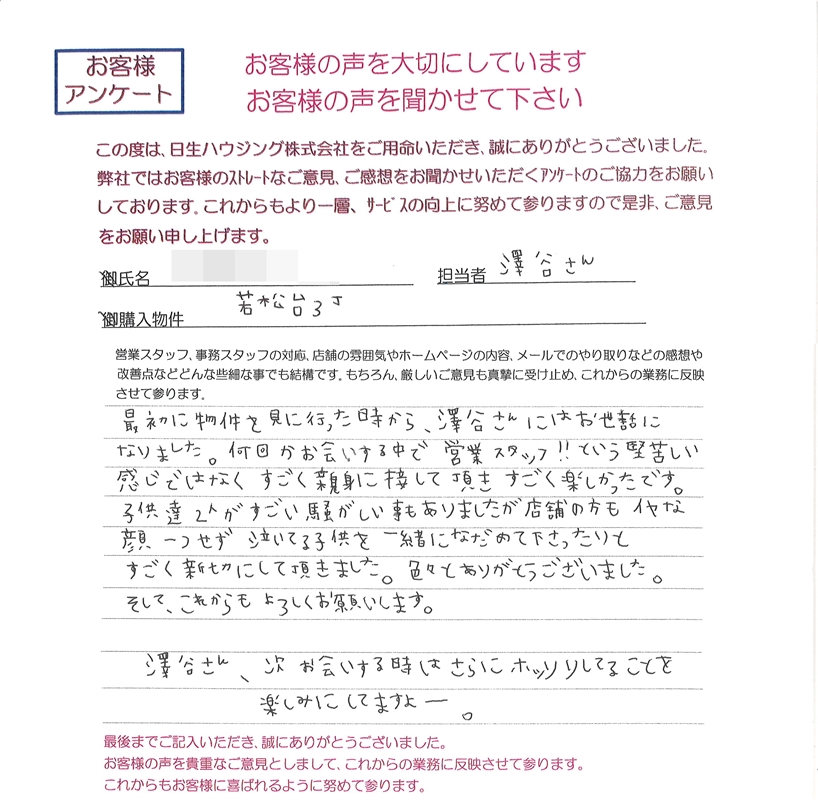 お客様
アンケート
お客様の声を大切にしています
お客様の声を聞かせて下さい
この度は、日生ハウジング株式会社をご用命いただき、誠にありがとうございました。
弊社ではお客様のｽﾄﾚｰﾄなご意見、ご感想をお聞かせいただくｱﾝｹｰﾄのご協力をお願い
しております。これからもより一層、ｻｰﾋﾞｽの向上に努めて参りますので是非、ご意見
をお願い申し上げます。
御氏名
担当者 澤谷さん
御購入物件 若松台3丁
営業スタッフ、事務スタッフの対応、店舗の雰囲気やホームページの内容、メールでのやり取りなどの感想や
改善点などどんな些細な事でも結構です。もちろん、厳しいご意見も真摯に受け止め、これからの業務に反映
させて参ります。
最初に物件を見に行った時から、澤谷さんにはお世話に
なりました。何回かお会いする中で営業スタッフ!!という堅苦しい
感じではなくすごく親身に接して頂きすごく楽しかったです。
子供達2人がすごい騒がしい事もありましたが店舗の方もイヤな
顔一つせず泣いてる子供を一緒になだめて下さったりと
すごく親切にして頂きました。色々とありがとうございました。
そして、これからもよろしくお願いします。
澤谷さん、次お会いする時はさらにホッソリしてることを
楽しみにしてますよー。
最後までご記入いただき、誠にありがとうございました。
お客様の声を貴重なご意見としまして、これからの業務に反映させて参ります。
これからもお客様に喜ばれるように努めて参ります。